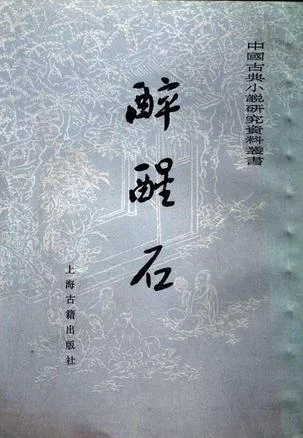 中國古典小說研究資料叢書
醉醒石
上海古籍出版社